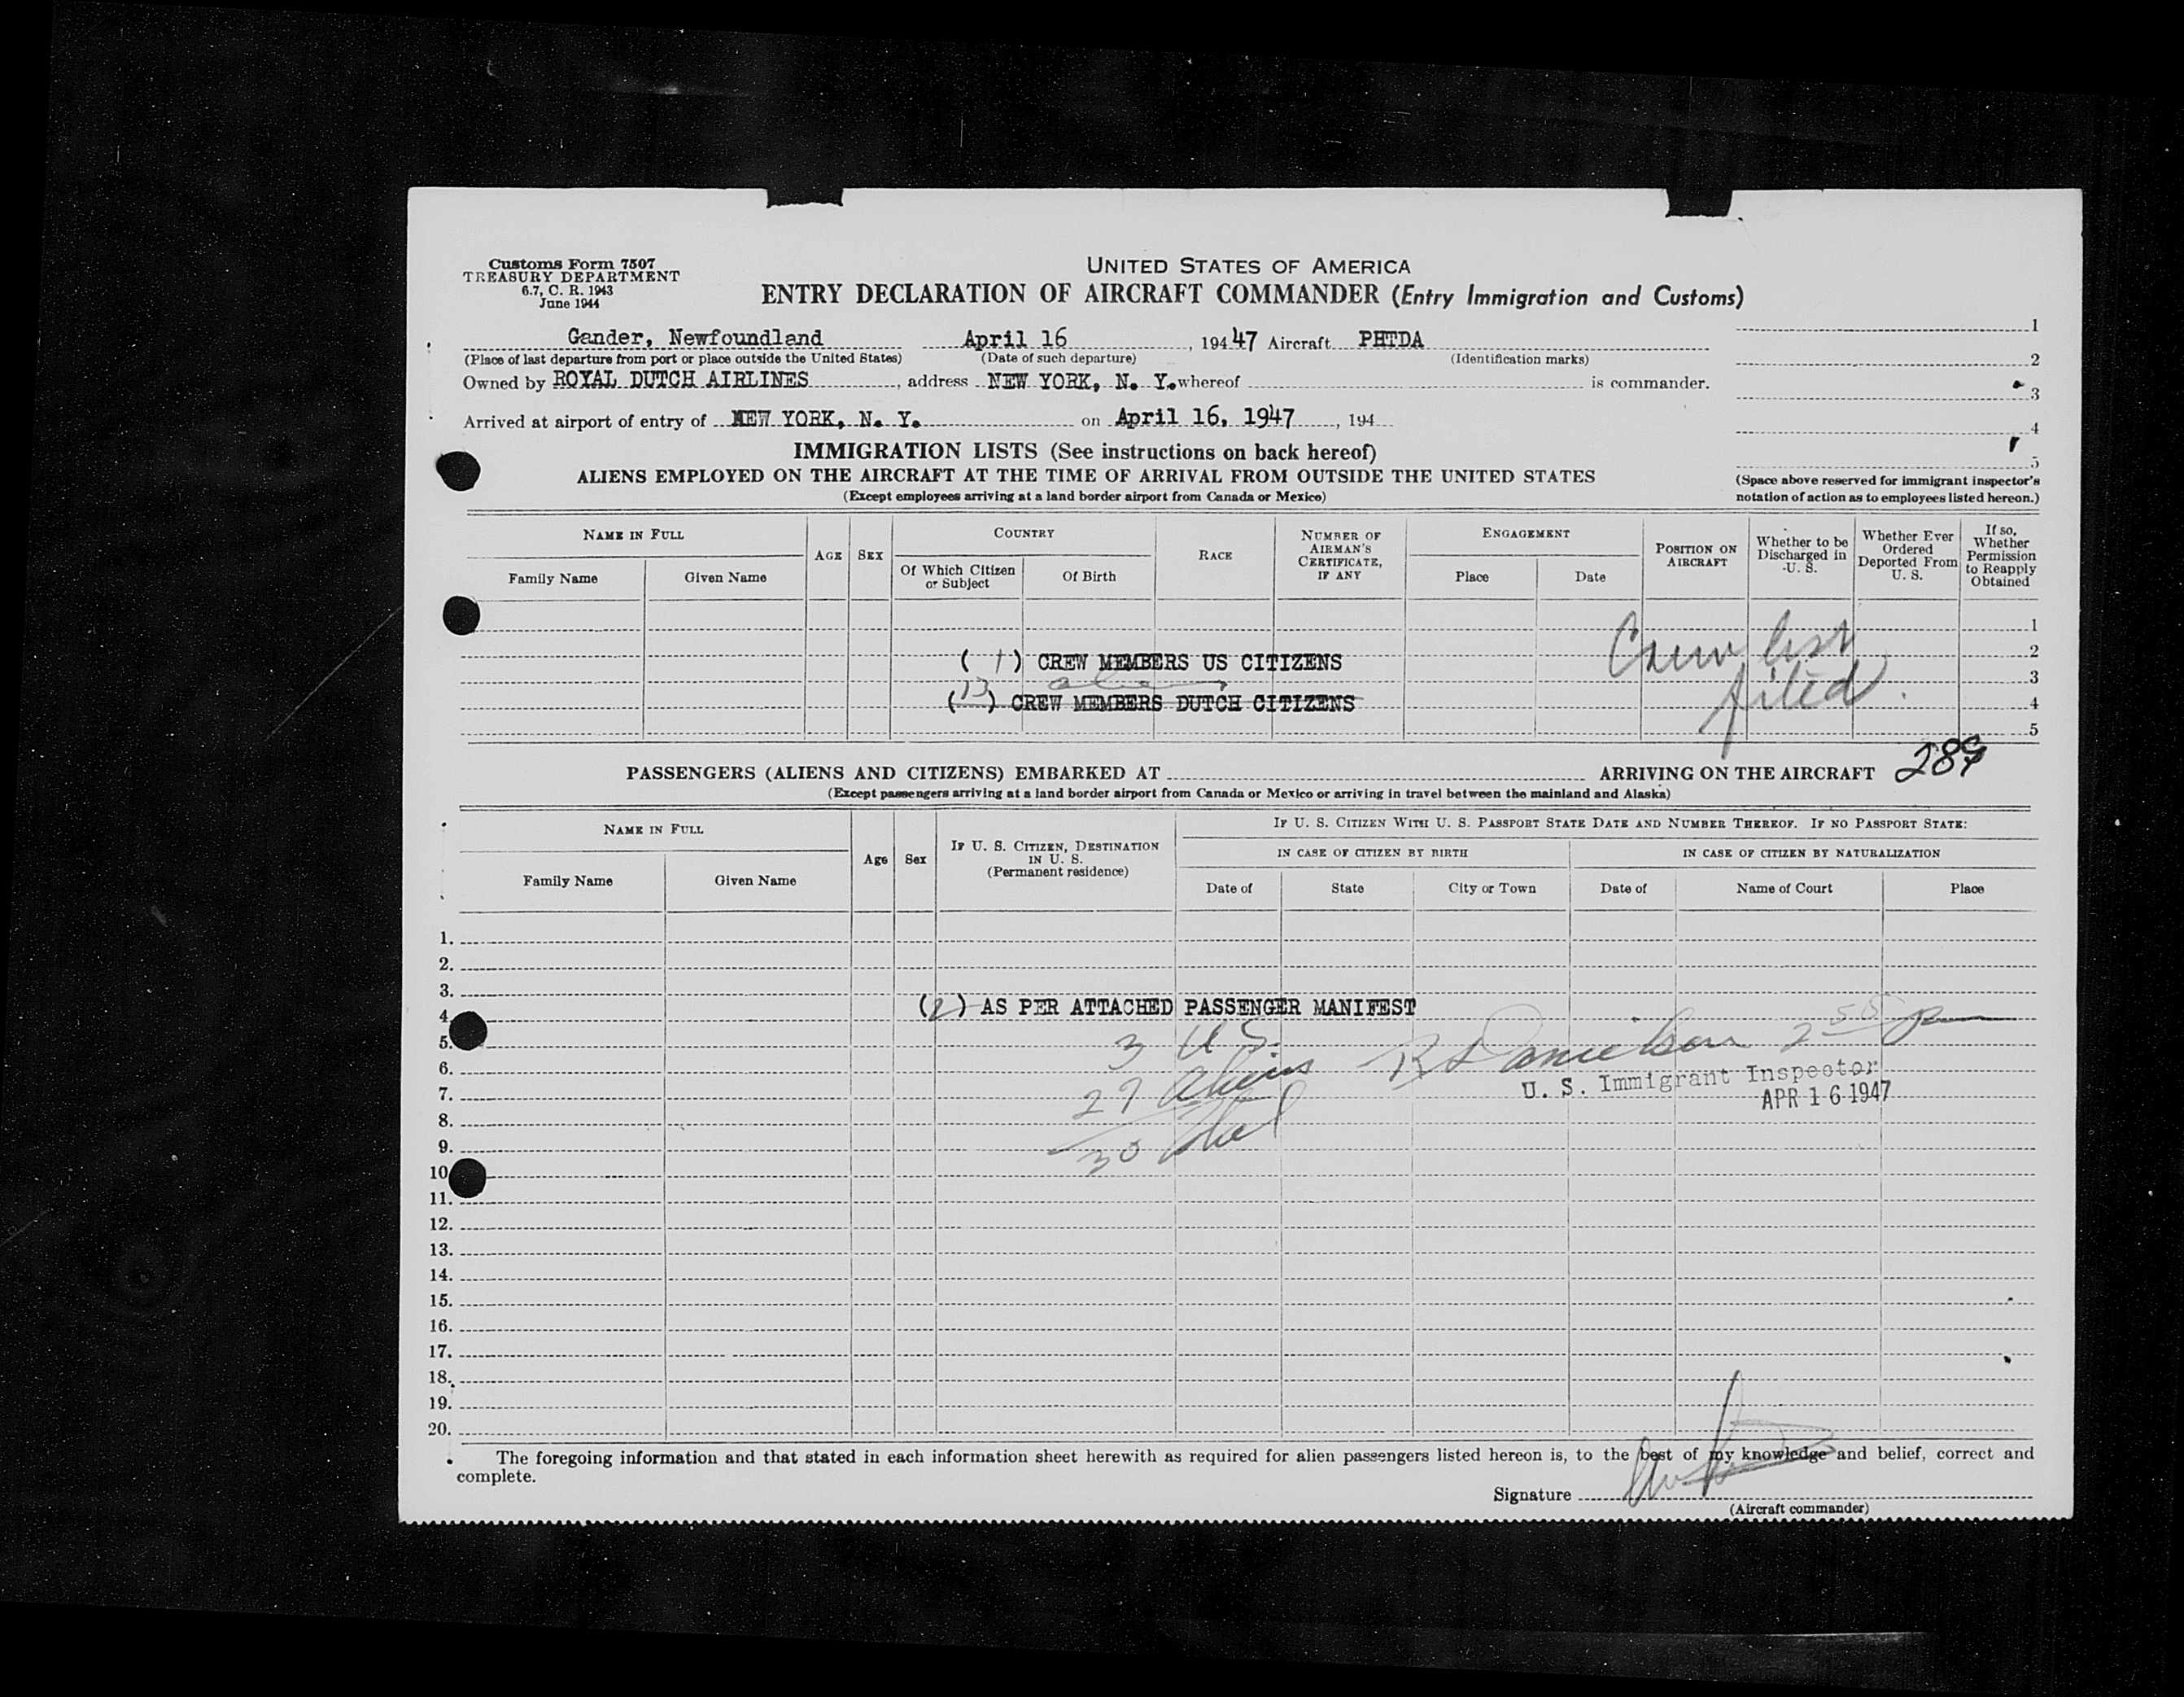 Customs Form 7507
TREASURY DEPARTMENT
6.7, C. R. 1943
June 1944
UNITED STATES OF AMERICA
ENTRY DECLARATION OF AIRCRAFT COMMANDER (Entry Immigration and Customs)
Gander, Newfoundland April 16, 19447 Aircraft PHTDA
(Place of last departure from port or place outside the United States) (Date of such departure) (Identification marks)
Owned by ROYAL DUTCH AIRLINES, address NEW YORK, N. Y. whereof is commander.
Arrived at airport of entry of NEW YORK, N. Y. on April 16, 1947, 194
1
2
3
4
5
(Space above reserved for immigrant inspector's
notation of action as to employees listed hereon.)
IMMIGRATION LISTS (See instructions on back hereof)
ALIENS EMPLOYED ON THE AIRCRAFT AT THE TIME OF ARRIVAL FROM OUTSIDE THE UNITED STATES
(Except employees arriving at a land border airport from Canada or Mexico)
NAME IN FULL
Family Name Given Name
AGE SEX
COUNTRY
Of Which Citizen or Subject Of Birth
RACE
NUMBER OF AIRMAN'S CERTIFICATE, IF ANY
ENGAGEMENT
Place Date
POSITION ON AIRCRAFT
Whether to be Discharged in U. S.
Whether Ever Ordered Deported From U. S.
If so, Whether Permission to Reapply Obtained
1
( 1 ) CREW MEMBERS US CITIZENS Crew list 2
alien filed. 3
( 13 ) CREW MEMBERS DUTCH CITIZENS 4
5
PASSENGERS (ALIENS AND CITIZENS) EMBARKED AT ARRIVING ON THE AIRCRAFT 289
(Except passengers arriving at a land border airport from Canada or Mexico or arriving in travel between the mainland and Alaska)
NAME IN FULL
Family Name Given Name
Age Sex
IF U. S. CITIZEN, DESTINATION IN U. S.
(Permanent residence)
IF U. S. CITIZEN WITH U. S. PASSPORT STATE DATE AND NUMBER THEREOF. IF NO PASSPORT STATE:
IN CASE OF CITIZEN BY BIRTH IN CASE OF CITIZEN BY NATURALIZATION
Date of State City or Town Date of Name of Court Place
1.
2.
3.
(2) AS PER ATTACHED PASSENGER MANIFEST
4.
5. 3 U S. R Danielson 2 55 pm
6. 27 Aliens U. S. Immigrant Inspector
7. APR 16 1947
8.
9. 30 total
10
11.
12.
13.
14.
15.
16.
17.
18.
19.
20.
The foregoing information and that stated in each information sheet herewith as required for alien passengers listed hereon is, to the best of my knowledge and belief, correct and
complete.
Signature
(Aircraft commander)